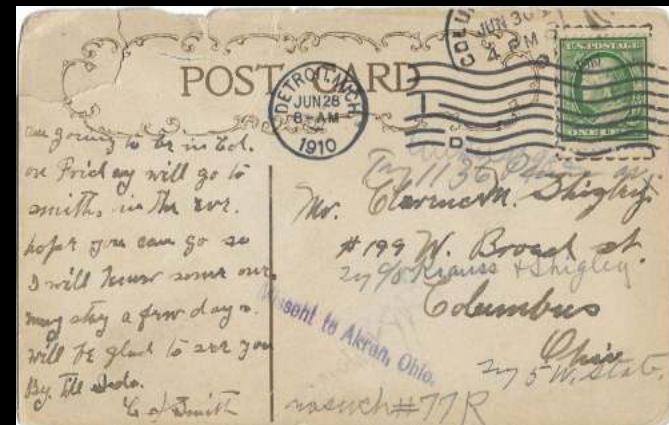 POST CARD
DETROIT, MICH.
JUN 28
8- AM
1910
COLU
JUN 30
4 PM
U.S. POSTAGE
ONE CENT
am going to be in Col.
on Friday will go to
smiths in the eve.
hope you can go so
I will know some one.
may stay a few days.
will be glad to see you
By. Ill
C J Smith
Try 1136
Mr. Clarence M. Shigley.
#199 W. Broad st.
Try c/o Krauss & Shigley
Columbus
Ohio
Try 5 W. State.
Missent to Akron, Ohio.
no such # 77 R